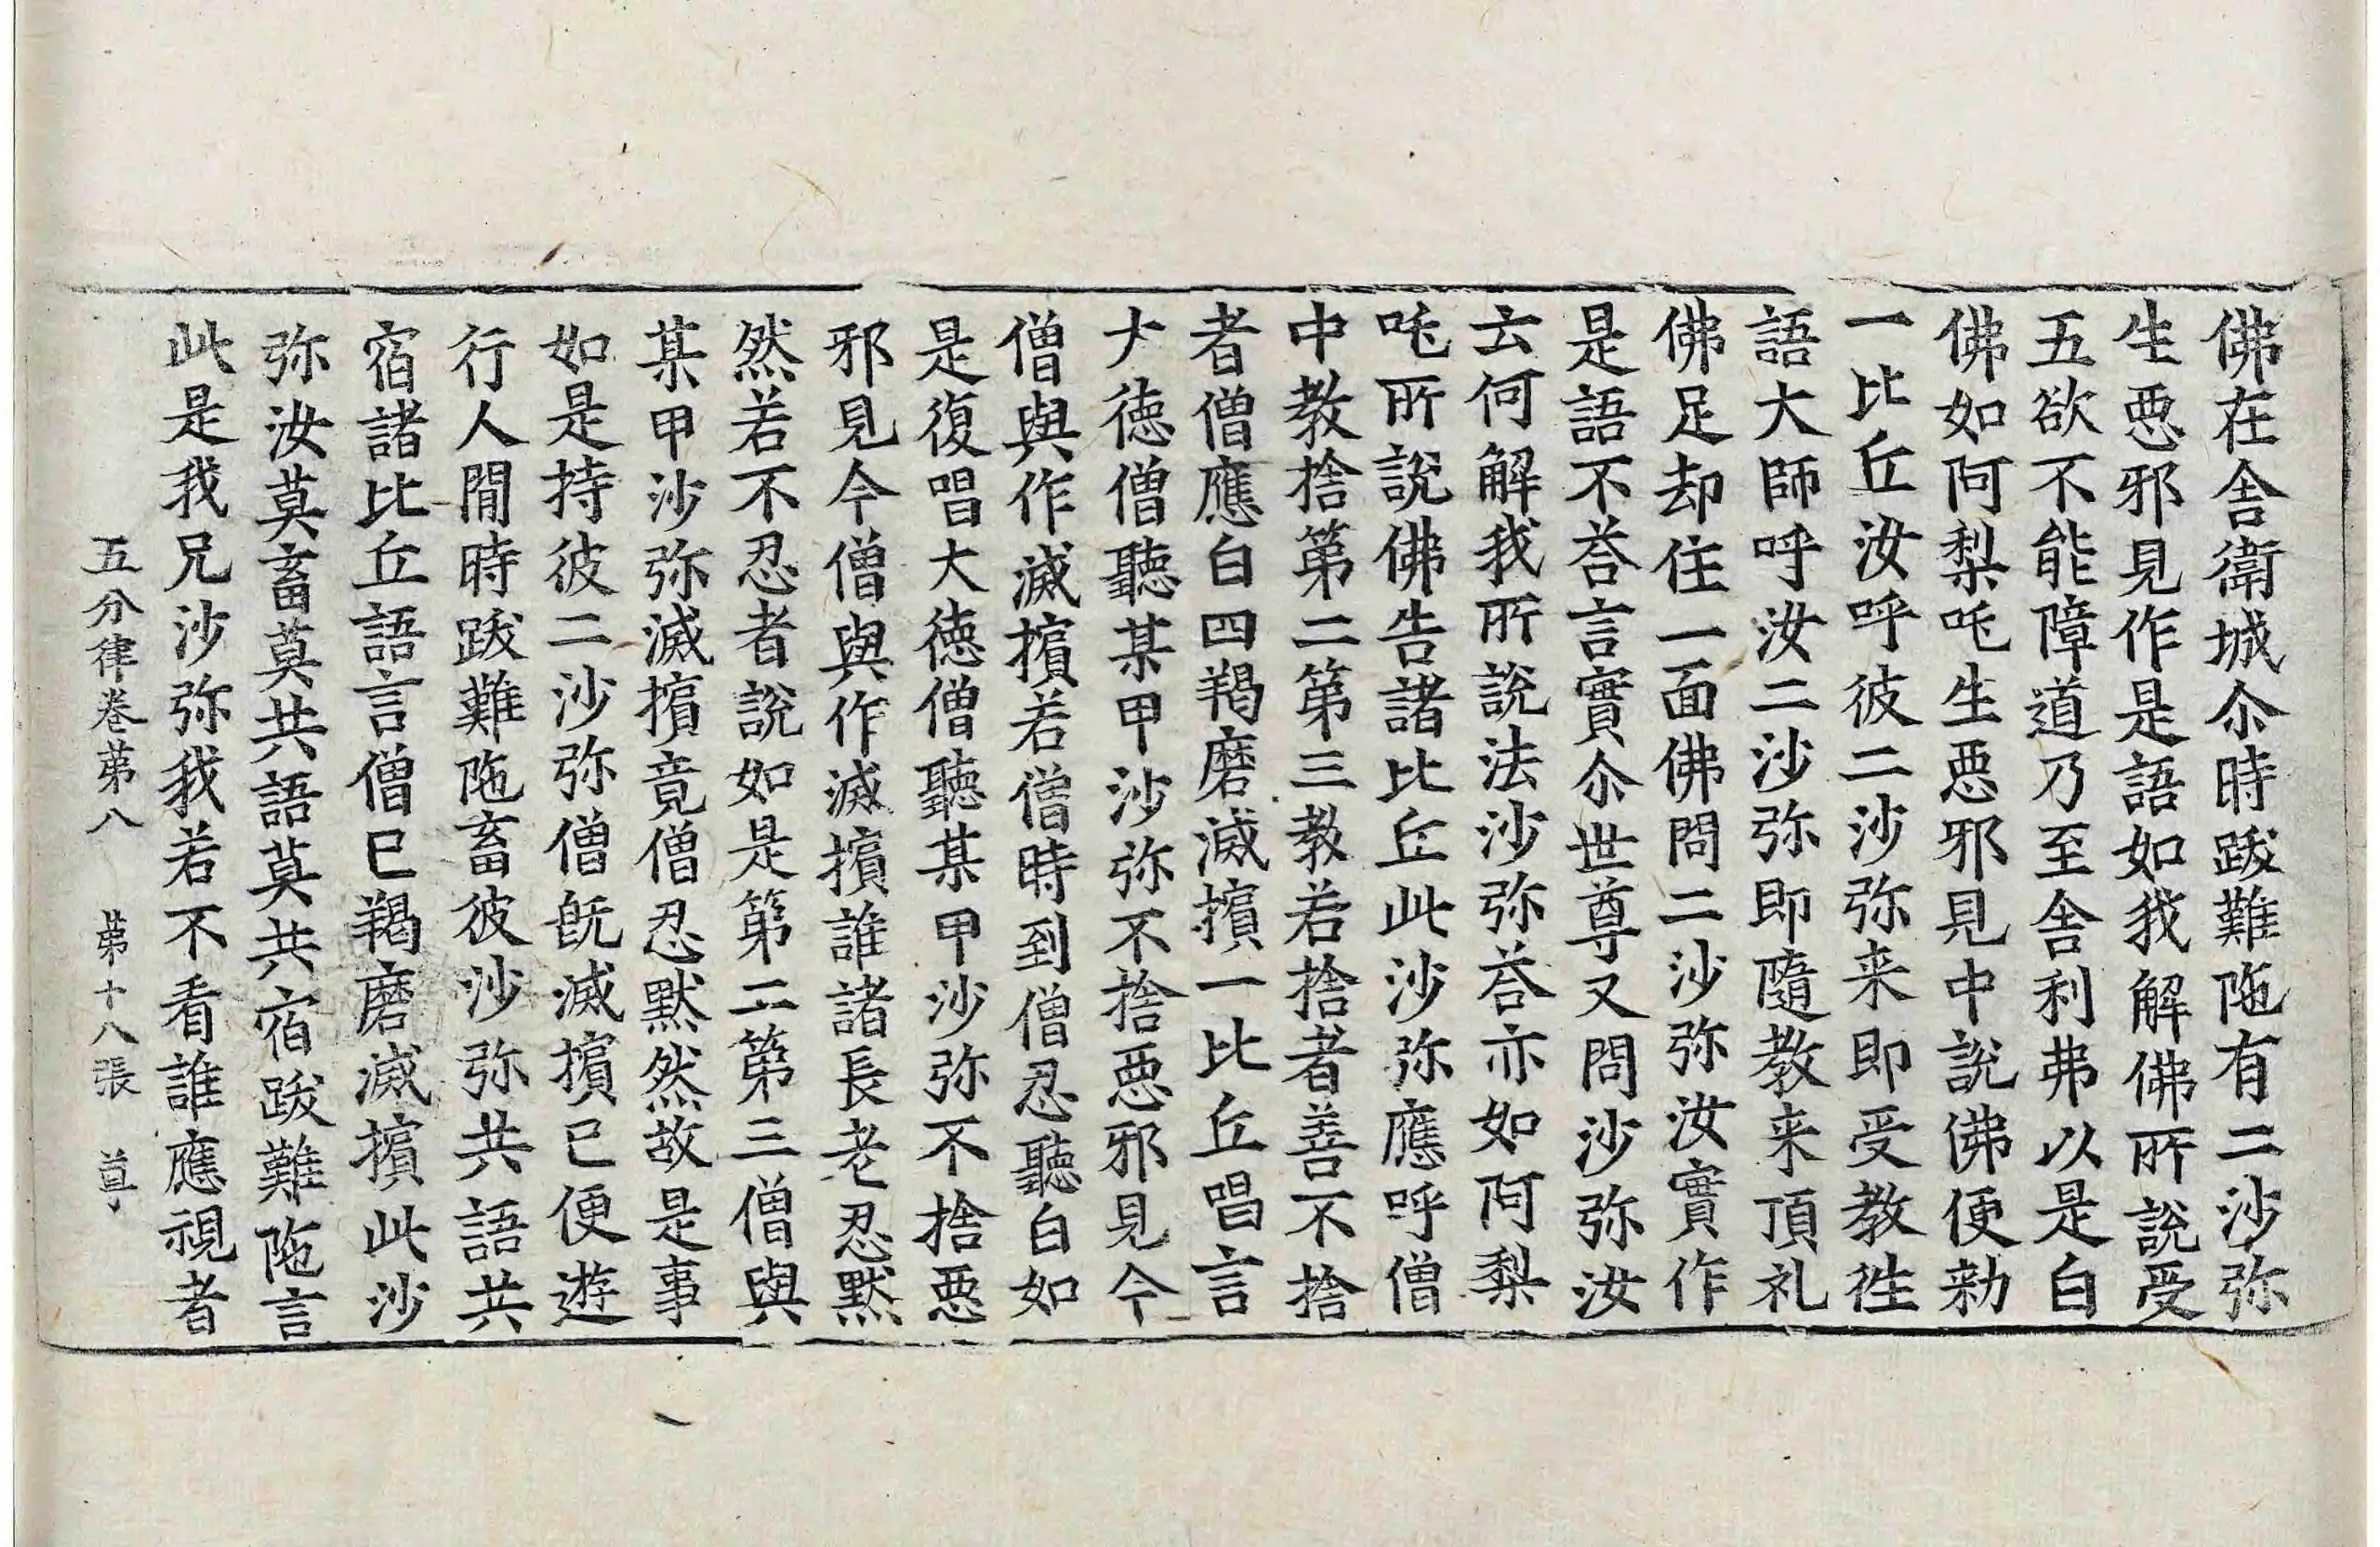 佛在舎衛城尒時跋難陁有二沙弥
生惡邪見作是語如我解佛所說受
五欲不能障道乃至舎利弗以是白
佛如阿梨吒生惡邪見中說佛便勑
一比丘汝呼彼二沙弥来即受教徃
語大師呼汝二沙弥即隨教来頂礼
佛足却住一面佛問二沙弥汝實作
是語不荅言實尒世尊又問沙弥汝
云何解我所說法沙弥荅亦如阿梨
吒所說佛告諸比丘此沙弥應呼僧
中教捨第二第三教若捨者善不捨
者僧應白四羯磨滅擯一比丘唱言
大德僧聽某甲沙弥不捨惡邪見今
僧與作滅擯若僧時到僧忍聽白如
是復唱大德僧聽某甲沙弥不捨惡
邪見今僧與作滅擯誰諸長老忍默
然若不忍者說如是第二第三僧與
某甲沙弥滅擯竟僧忍默然故是事
如是持彼二沙弥僧旣滅擯已便遊
行人閒時跋難陁畜彼沙弥共語共
宿諸比丘語言僧已羯磨滅擯此沙
弥汝莫畜莫共語莫共宿跋難陁言
此是我兄沙弥我若不看誰應視者
五分律卷第八 第十八張 尊